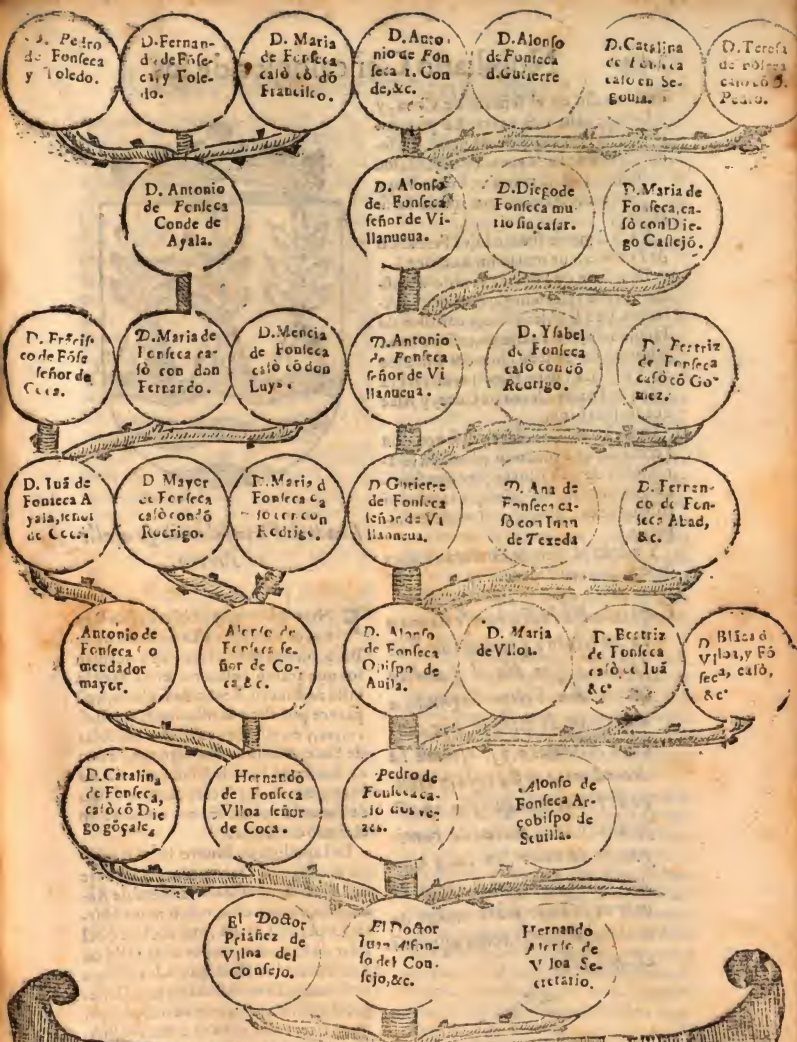 D. Pedro
de Fonseca
y Toledo.
D. Fernan-
do de Fōse-
ca, y Tole-
do.
D. Maria
de Fonseca
casò cō dō
Francisco.
D. Anto-
nio de Fon
seca 1. Con
de, &c.
D. Alonso
de Fonseca
d. Gutierre
D. Catalina
de Fonseca
casò en Se-
gouia.
D. Teresa
de Fonseca
casò cō D.
Pedro.
D. Antonio
de Fonseca
Conde de
Ayala.
D. Alonso
de Fonseca
señor de Vi-
llanueua.
D. Diego de
Fonseca mu
rio sin casar.
D. Maria de
Fonseca, ca-
sò con Die-
go Castejō.
D. Frācis
co de Fōse
señor de
Coca.
D. Maria de
Fonseca ca-
sò con don
Fernardo.
D. Mencia
de Fonseca
casò cō don
Luys.
D. Antonio
de Fonseca
señor de Vi
llanueua.
D. Ysabel
de Fonseca
casò con dō
Rodrigo.
D. Beatriz
de Fonseca
casò cō Go-
mez.
D. Iuā de
Fonseca A
yala, señor
de Coca.
D Mayor
de Fonseca
casò con dō
Rodrigo.
D. Maria d
Fonseca ca
sò con
Rodrigo.
D Gutierre
de Fonseca
señor de Vi
llanueua.
D. Ana de
Fonseca ca-
sò con Iuan
de Texeda
D. Fernan-
do de Fon-
seca Abad,
&c.
Antonio de
Fonseca Co
mendador
mayor.
Alonso de
Fonseca se-
ñor de Co-
ca, &c.
D. Alonso
de Fonseca
Obispo de
Auila.
D. Maria
de Vlloa.
D. Beatriz
de Fonseca
casò cō Iuā
&c.
D Blāca d
Vlloa, y Fō
seca, casò,
&c.
D. Catalina
de Fonseca,
casò cō Die
go gōçalez
Hernando
de Fonseca
Vlloa señor
de Coca.
Pedro de
Fonseca ca-
sò dos ve-
zes.
Alonso de
Fonseca Ar-
çobispo de
Seuilla.
El Doctor
Priañez de
Vlloa del
Consejo.
El Doctor
Iuan Alfon-
so del Con-
sejo, &c.
Hernando
Alonso de
Vlloa Se-
cretario.